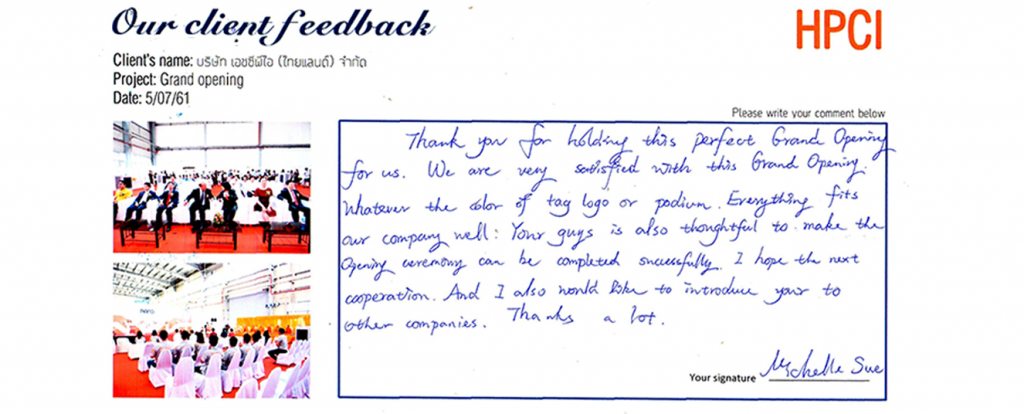 Our client feedback
HPCI
Client's name: บริษัท เอชซีพีไอ (ไทยแลนด์) จำกัด
Project: Grand opening
Date: 5/07/61
Please write your comment below
Thank you for holding this perfect Grand Opening
for us. We are very satisfied with this Grand Opening.
Whatever the color of tag logo or podium. Everything fits
our company well. Your guys is also thoughtful to make the
Opening ceremony can be completed successfully. I hope the next
cooperation. And I also would like to introduce your to
other companies. Thanks a lot.
Your signature Michelle Sue